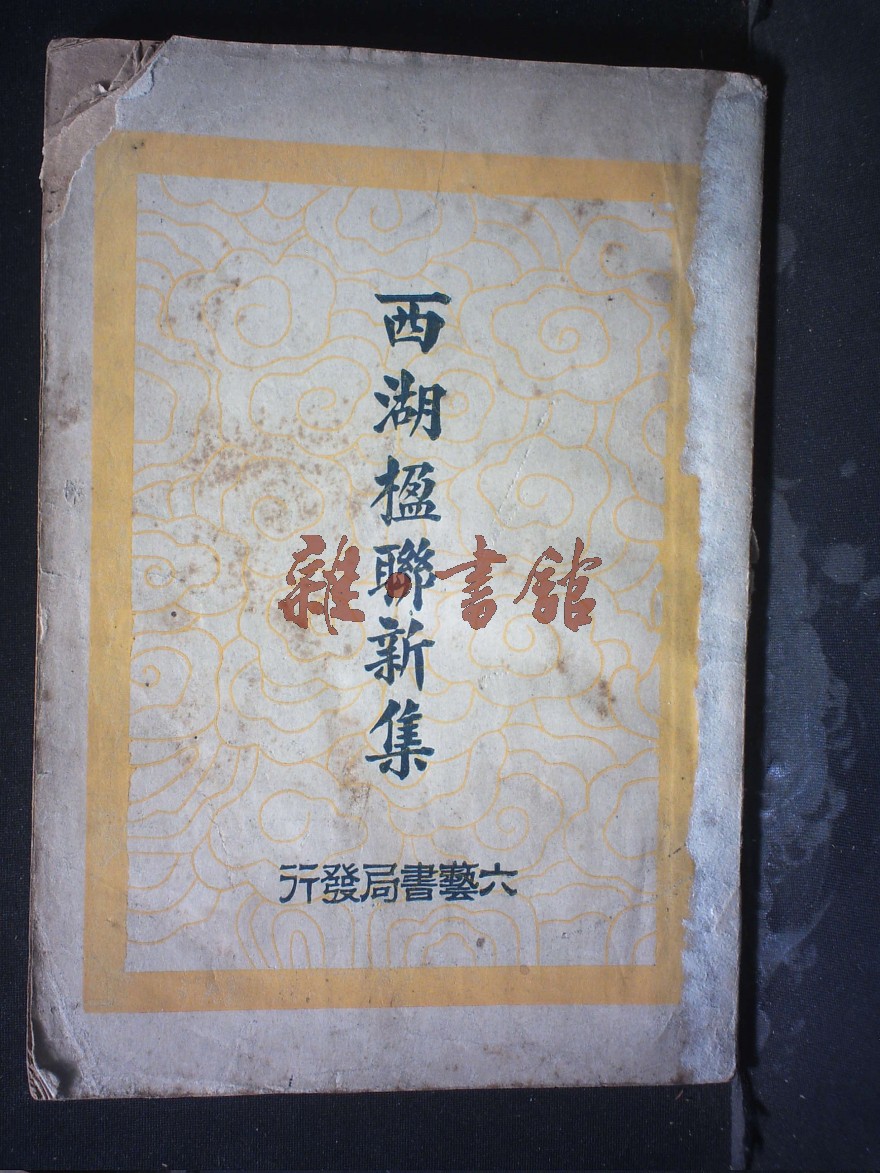 西湖楹聯新集
雜書館
六藝書局發行